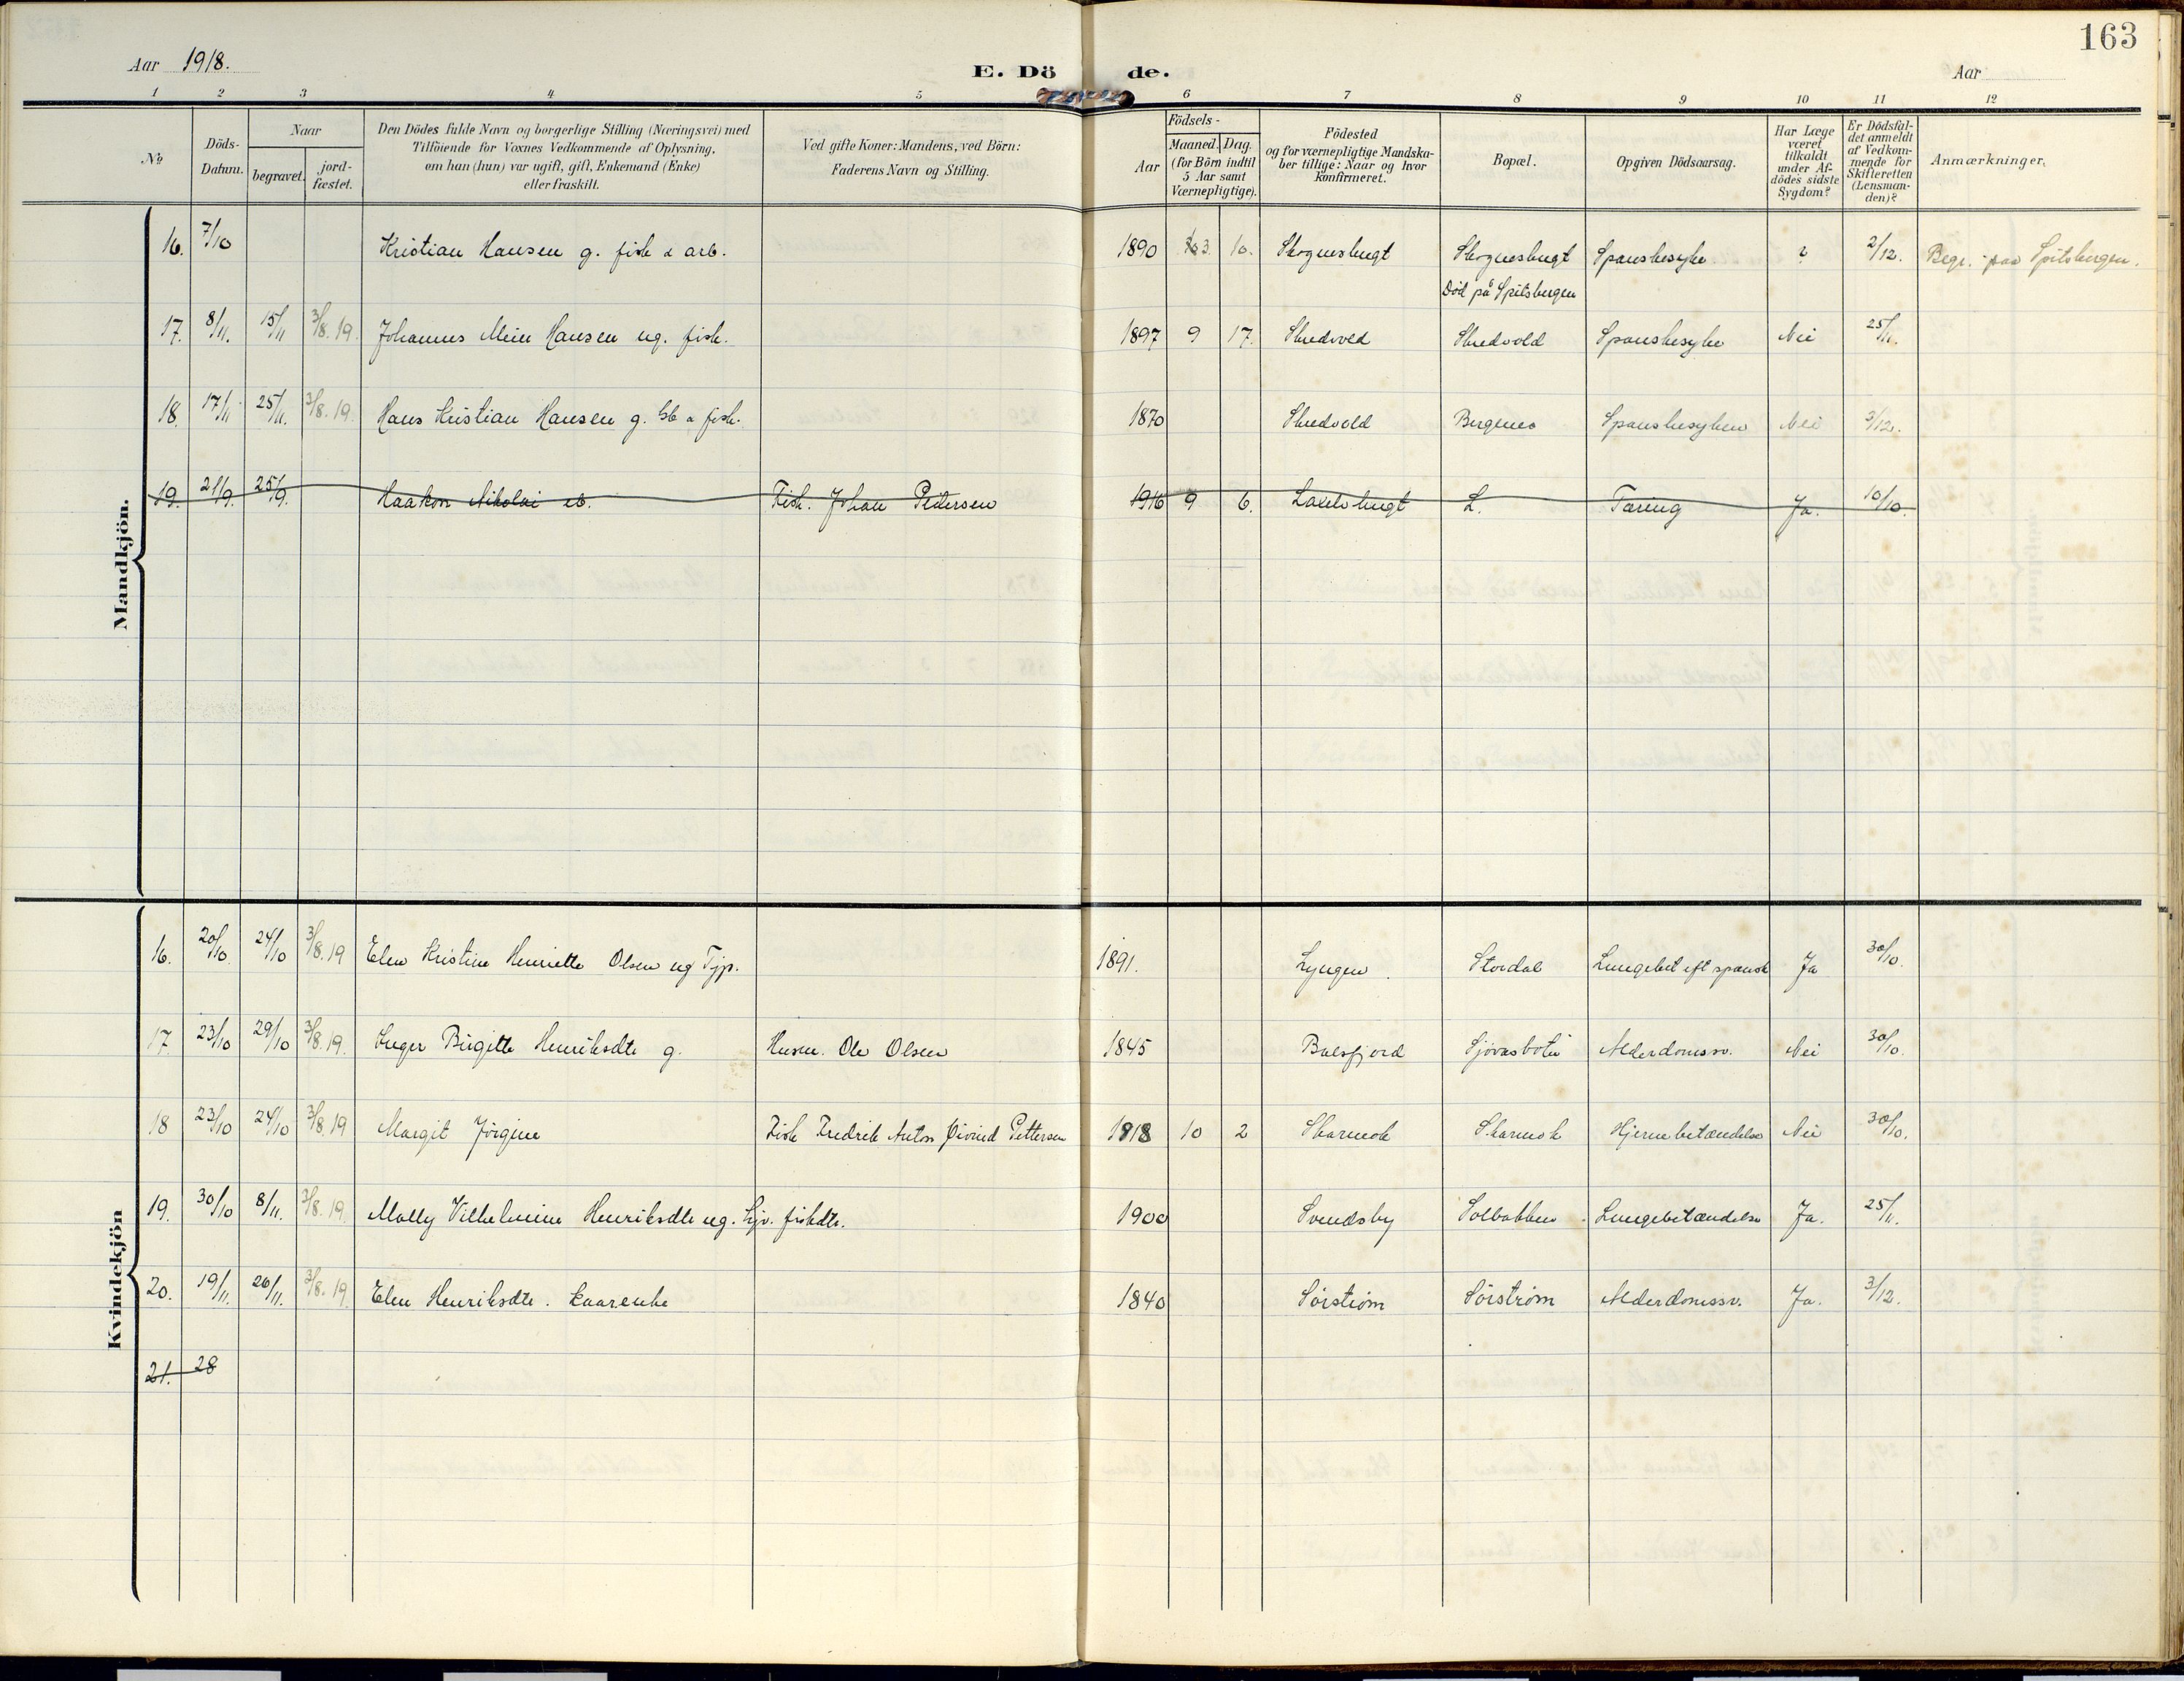 163
Aar 1918.
E. Dö de.
Aar
1 2 3 4 5 6 7 8 9 10 11 12
No
Döds-Datum.
Naar
begravet.
jord-fæstet.
Den Dödes fulde Navn og borgerlige Stilling (Næringsvei) med
Tilföiende for Voxnes Vedkommende af Oplysning,
om han (hun) var ugift, gift, Enkemand (Enke)
eller fraskilt.
Ved gifte Koner: Mandens, ved Börn:
Faderens Navn og Stilling.
Födsels-
Aar
Maaned. Dag.
(for Börn indtil
5 Aar samt
Værnepligtige).
Födested
og for værnepligtige Mandska-
ber tillige: Naar og hvor
konfirmeret.
Bopæl.
Opgiven Dödsaarsag.
Har Læge
været
tilkaldt
under Af-
dödes sidste
Sygdom?
Er Dödsfal-
det anmeldt
af Vedkom-
mende for
Skifteretten
(Lensman-
den)?
Anmærkninger.
Mandkjön.
16. 7/10 Kristian Hansen g. fisk & arb. 1890 3 10. Skognesbugt Skognesbugt Spanskesyke ? 2/12. Begr. paa Spitsbergen.
Död på Spitsbergen
17. 8/11. 15/11 3/8.19. Johannes Mein Hansen ug. fisk. 1897 9 17. Skredvold Skredvold Spanskesyke Nei 25/11.
18. 17/11 25/11. 3/8.19. Hans Kristian Hansen g. sb & fisk. 1870 Skredvold Bergenes Spanskesyken Nei 3/12.
19. 21/9. 25/9. Haakon Nikolai eb. Fisk. Johan Pedersen 1916 9 6. Lakselvbugt L. Tæring Ja. 10/10.
Kvindekjön
16. 20/10. 24/10 3/8.19 Elen Kristine Henriette Olsen ug Tjp. 1891. Lyngen. Stordal Lungebet eft spansk Ja 30/10.
17. 23/10 29/10 3/8.19. Inger Birgitte Henriksdtr g. Husm. Ole Olsen 1845 Balsfjord Sjövasbotn Alderdomssv. Nei 30/10.
18 23/10 24/10 3/8.19 Margit Jörgine Fisk Fredrik Anton Øivind Pettersen 1918 10 2 Skarmok Skarmok Hjernebetændelse Nei 30/10.
19. 30/10 8/11. 3/8.19. Molly Vilhelmine Henriksdtr ug. fiskdtr. 1900 Svendsby Solbakken Lungebetændelse Ja. 25/11.
20. 19/11. 26/11. 3/8.19. Elen Henriksdtr. kaarenke 1840 Sörström Sörström Alderdomssv. Ja. 3/12.
21. 28